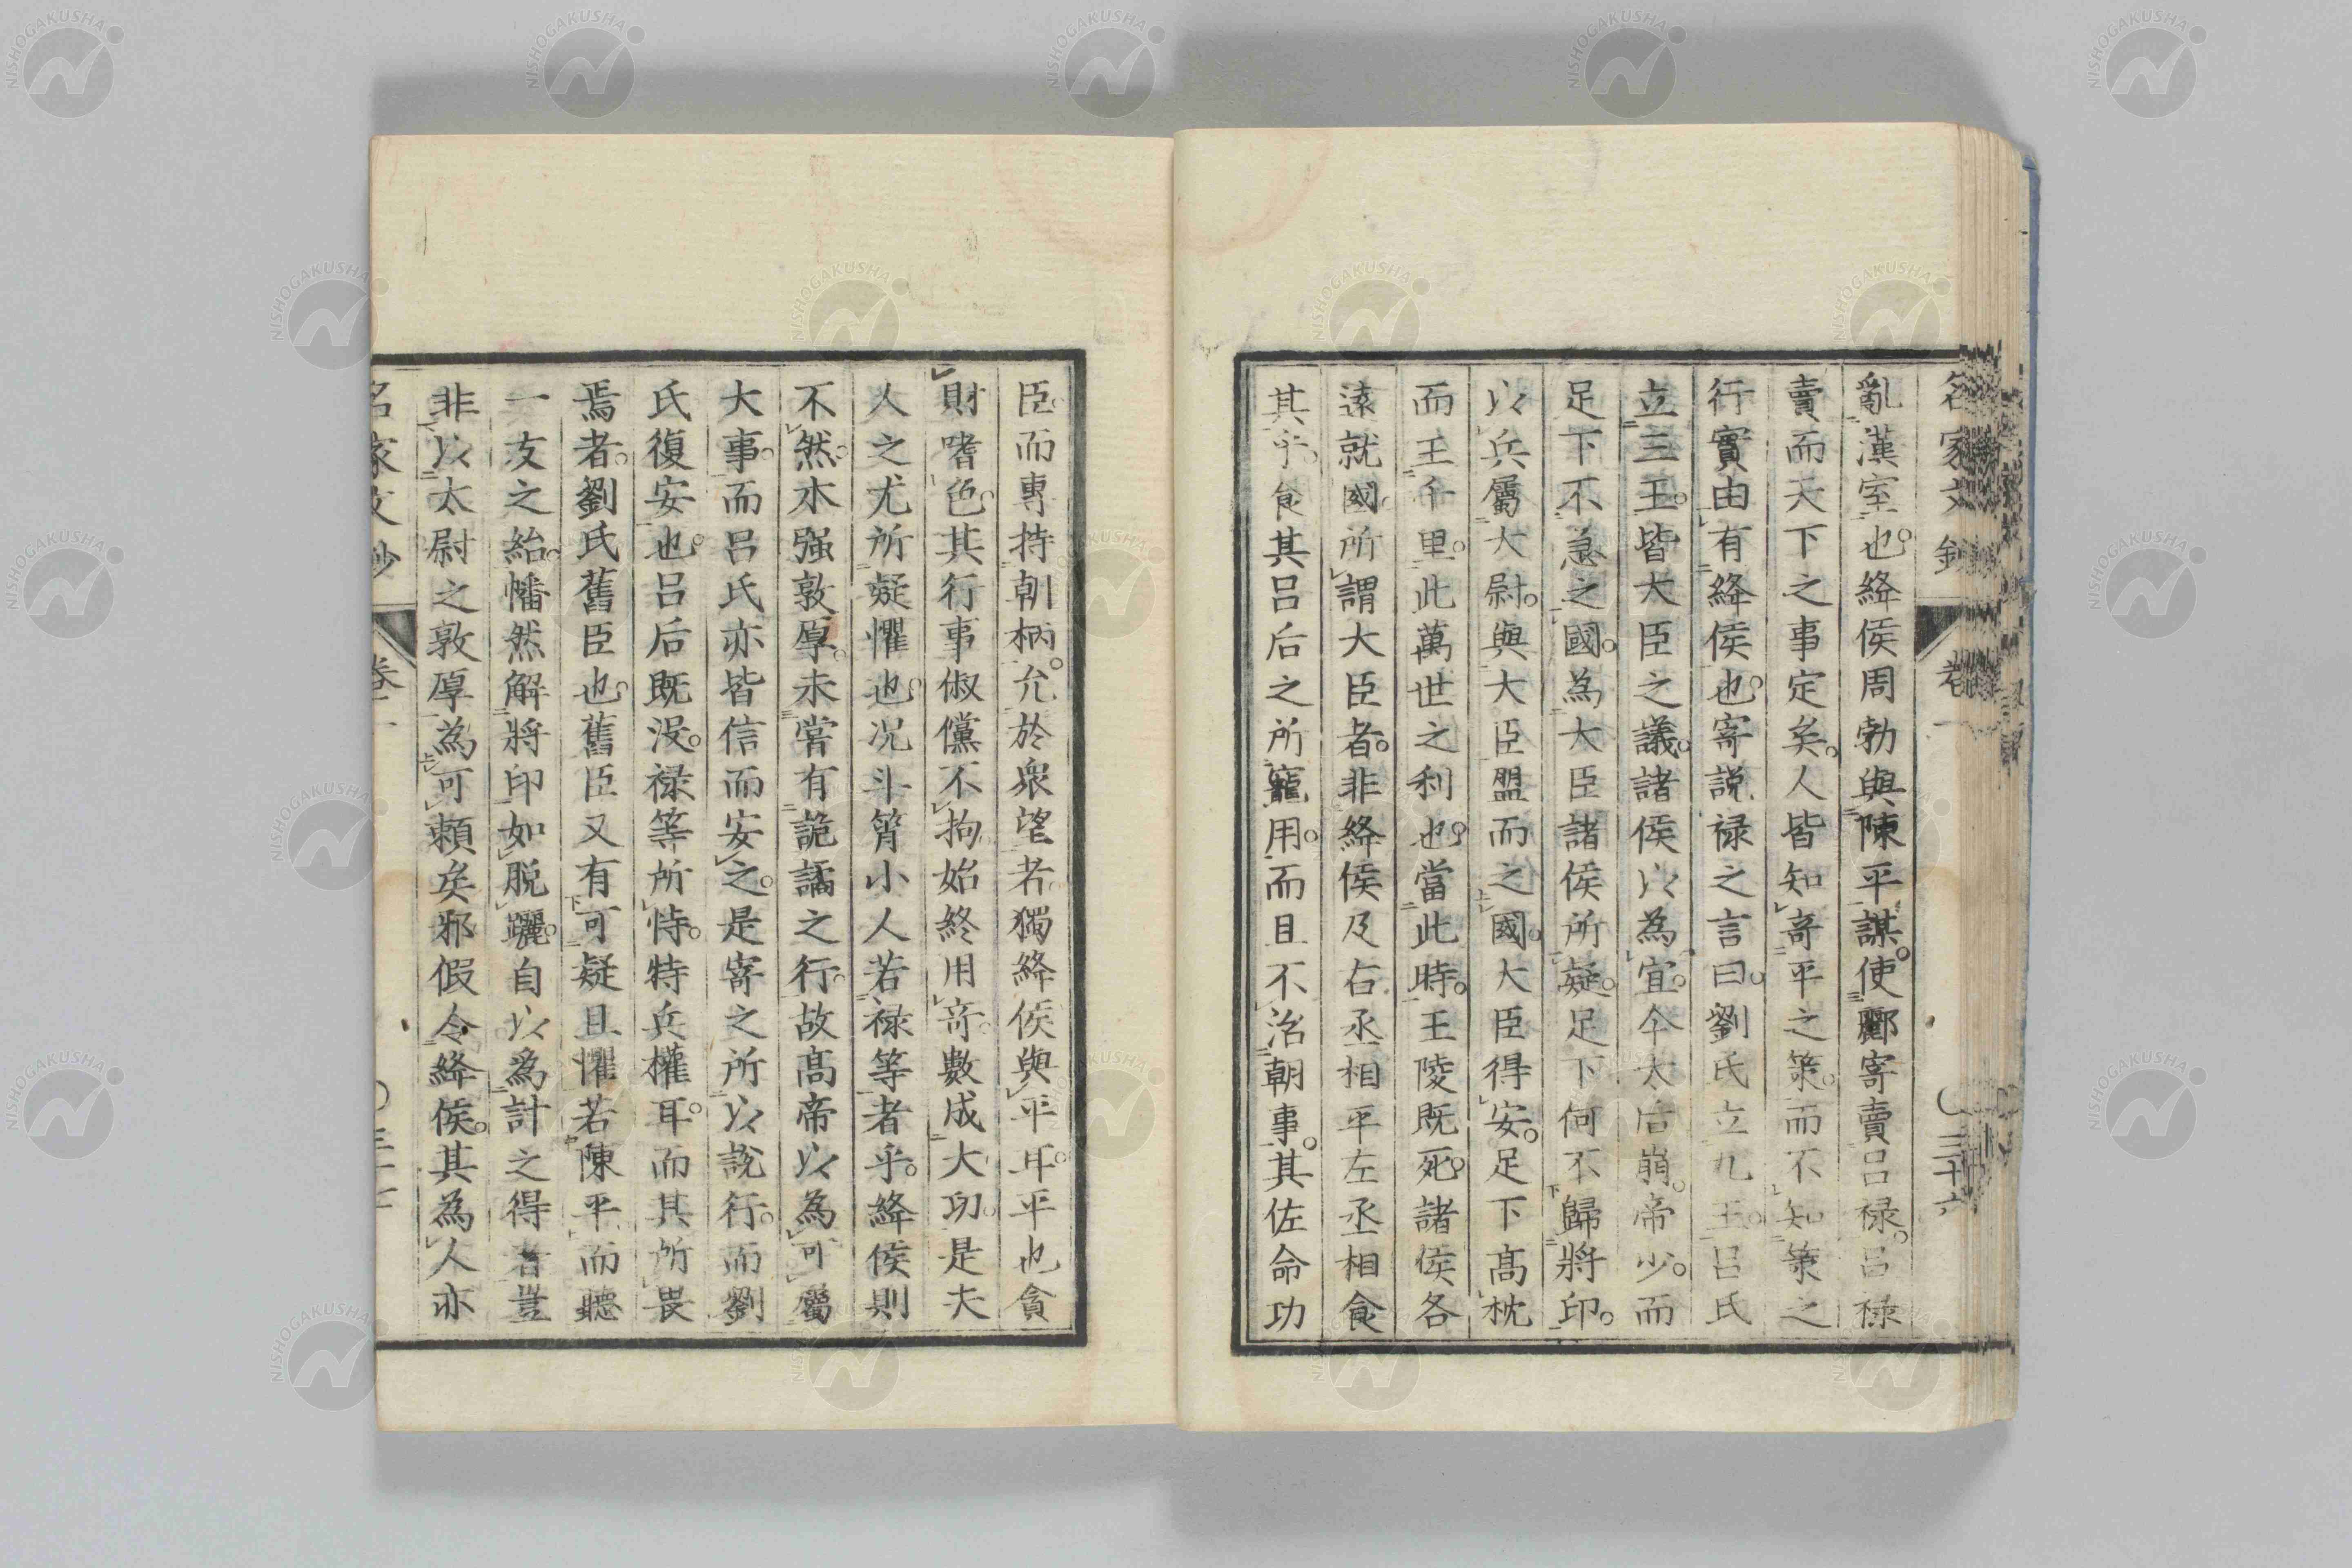 名家文鈔 卷一 三十六
亂漢室也。絳侯周勃與陳平謀。使酈寄賣呂祿。呂祿
賣而天下之事定矣。人皆知寄平之策。而不知策之
行實由有絳侯也。寄説祿之言曰。劉氏立九王。呂氏
立三王。皆大臣之議。諸侯以為宜。今太后崩。帝少。而
足下不急之國。為大臣諸侯所疑。足下何不歸將印。
以兵屬大尉。與大臣盟而之國。大臣得安。足下高枕
而王千里。此萬世之利也。當此時。王陵既死。諸侯各
遠就國。所謂大臣者。非絳侯及右丞相平左丞相食
其乎。食其呂后之所寵用。而且不治朝事。其佐命功
臣。而專持朝柄。允於衆望者。獨絳侯與平耳。平也貪
財嗜色。其行事俶儻不拘始終用奇。數成大功。是夫
人之尤所疑懼也。况斗筲小人若祿等者乎。絳侯則
不然。木强敦厚。未嘗有詭譎之行。故高帝以為可屬
大事。而呂氏亦皆信而安之。是寄之所以說行。而劉
氏復安也。呂后既没。祿等所恃。特兵權耳。而其所畏
焉者。劉氏舊臣也。舊臣又有可疑且懼若陳平而聽
一友之紿。幡然解將印如脱躧。自以為計之得者豈
非以太尉之敦厚為可頼矣邪假令絳侯。其為人亦
名家文鈔 卷一
NISHOGAKUSHA